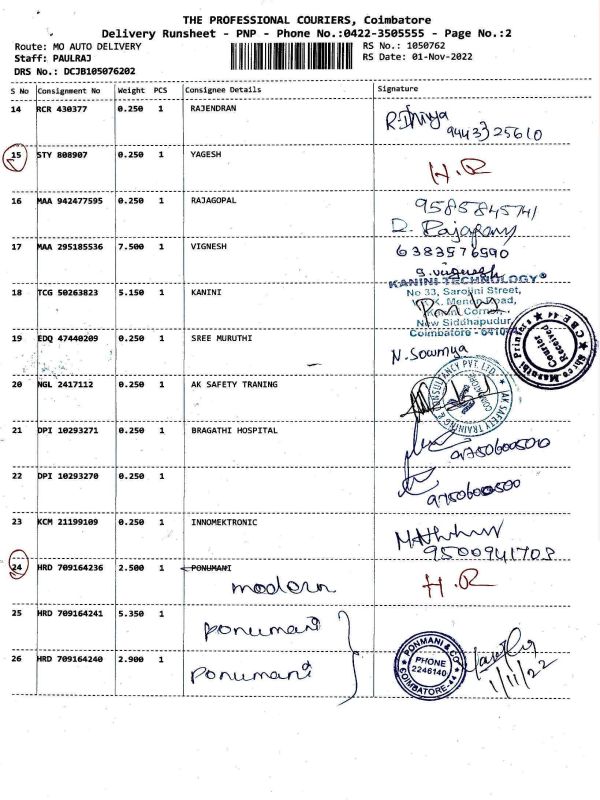 THE PROFESSIONAL COURIERS, Coimbatore
Delivery Runsheet - PNP - Phone No.:0422-3505555 - Page No.:2
Route: MO AUTO DELIVERY
RS No.: 1050762
Staff: PAULRAJ
RS Date: 01-Nov-2022
DRS No.: DCJB105076202
S No Consignment No Weight PCS Consignee Details Signature
14 RCR 430377 0.250 1 RAJENDRAN
9443325610
15 STY 808907 0.250 1 YAGESH
H.R
16 MAA 942477595 0.250 1 RAJAGOPAL
9585845741
17 MAA 295185536 7.500 1 VIGNESH
6383576590
S.Vignesh
18 TCG 50263823 5.150 1 KANINI
KANINI TECHNOLOGY
No 33, Sarojini Street,
New Siddhapudur,
Coimbatore - 641044
19 EDQ 47440209 0.250 1 SREE MURUTHI
N.Sowmya
Shree Maruthi Printers
CBE-44
Courier
Received
20 NGL 2417112 0.250 1 AK SAFETY TRANING
AK SAFETY TRAINING & CONSULTANCY PVT. LTD.
COIMBATORE
21 DPI 10293271 0.250 1 BRAGATHI HOSPITAL
22 DPI 10293270 0.250 1
9750600500
23 KCM 21199109 0.250 1 INNOMEKTRONIC
9500941703
24 HRD 709164236 2.500 1 PONUMANI
modern
H.R
25 HRD 709164241 5.350 1
ponumani
26 HRD 709164240 2.900 1
ponumani
PONMANI & CO
PHONE
2246140
COIMBATORE-44
1/11/22